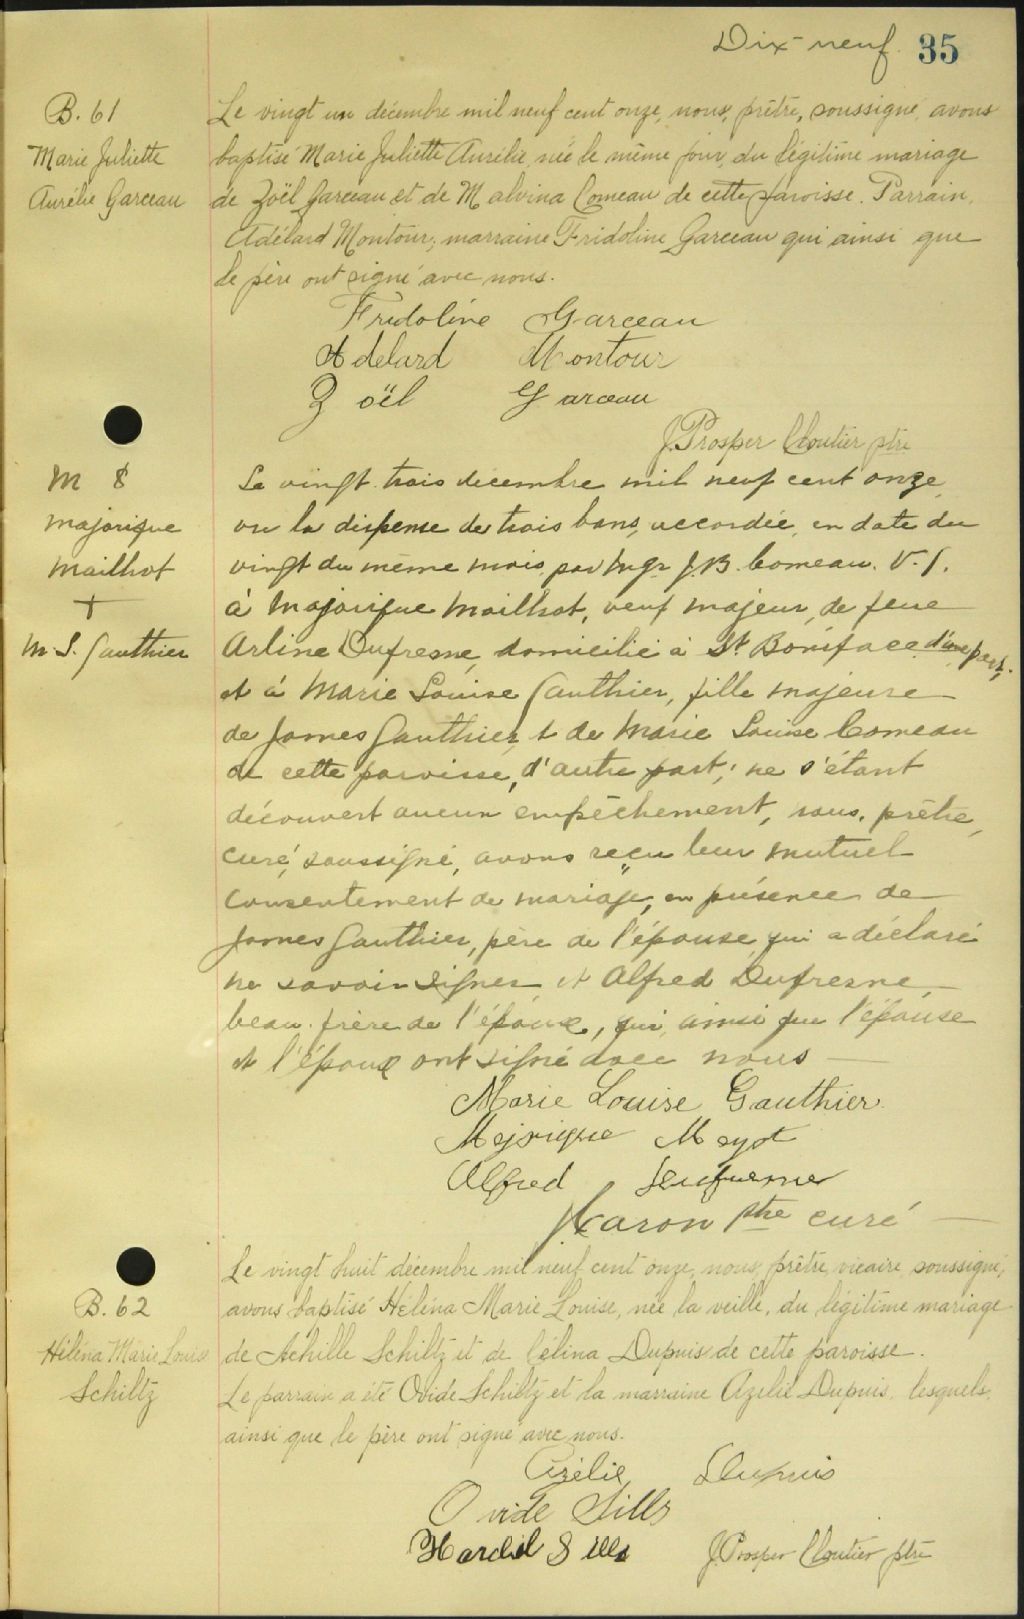 Dix-neuf. 35
B. 61
Marie Juliette
Aurélie Garceau
Le vingt un décembre mil neuf cent onze, nous, prêtre, soussigné, avons
baptisé Marie Juliette Aurélie, née le même jour, du légitime mariage
de Zoël Garceau et de Malvina Comeau de cette paroisse. Parrain,
Adélard Montour; marraine Fridoline Garceau qui ainsi que
le père ont signé avec nous.
Fridoline Garceau
Adelard Montour
Zoël Garceau
J. Prosper Cloutier ptre
M 8
Majorique
Mailhot
+
M. L. Gauthier
Le vingt trois décembre mil neuf cent onze,
vu la dispense de trois bans, accordée, en date du
vingt du même mois, par Mgr J. B. Comeau. V. G.
à Majorique Mailhot, veuf majeur, de feue
Arline Dufresne, domicilié à St Boniface d'une part,
et à Marie Louise Gauthier, fille majeure
de James Gauthier, & de Marie Louise Comeau
de cette paroisse, d'autre part; ne s'étant
découvert aucun empêchement, nous, prêtre,
curé, soussigné, avons reçu leur mutuel
consentement de mariage, en présence de
James Gauthier, père de l'épouse, qui a déclaré
ne savoir signer, et Alfred Dufresne,
beau-frère de l'époux, qui, ainsi que l'épouse
et l'époux ont signé avec nous
Marie Louise Gauthier.
Mejorique Meyot
Alfred Dufresne
J. Caron ptre curé
B. 62
Hélèna Marie Louise
Schiltz
Le vingt huit décembre mil neuf cent onze, nous, prêtre, vicaire, soussigné,
avons baptisé Hélèna Marie Louise, née la veille, du légitime mariage
de Achille Schiltz et de Célina Dupuis de cette paroisse.
Le parrain a été Ovide Schiltz et la marraine Azélie Dupuis, lesquels,
ainsi que le père ont signé avec nous.
Azélie Dupuis
Ovide Sills
Sills J. Prosper Cloutier ptre